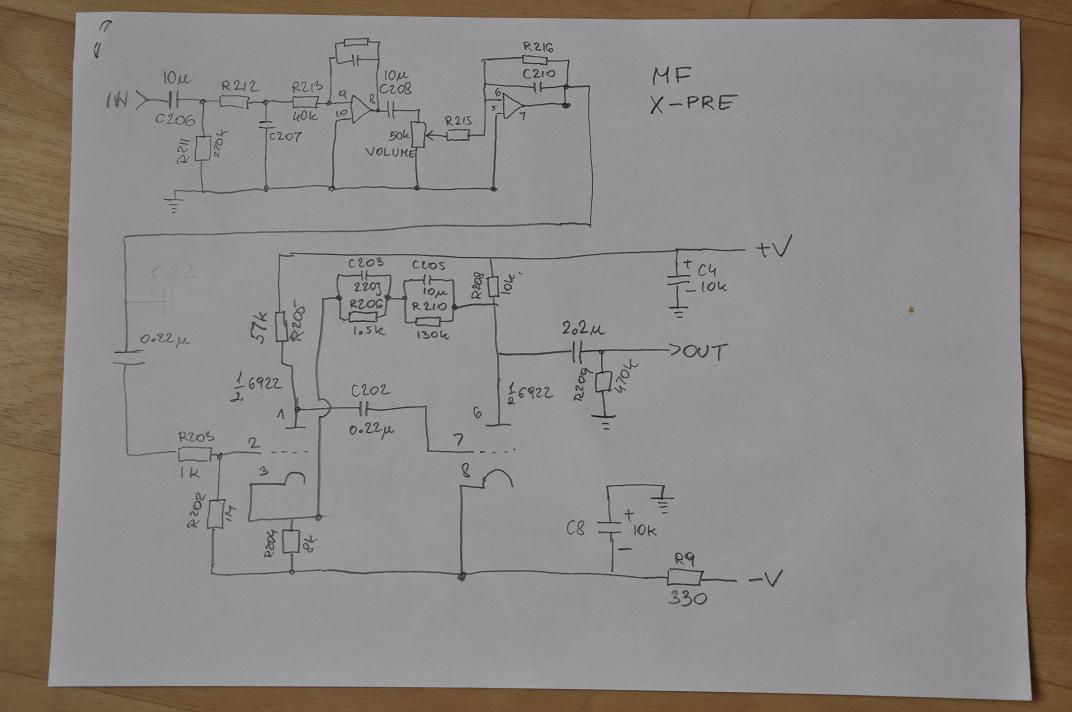 R216
10μ
R212
R213
10μ
C210
MF
IN
9
8
C208
6
X-PRE
C206
40k
10
5
7
R211
220k
C207
50k
R215
VOLUME
0.22
+V
C203
C205
R208
10k
+
C4
220J
10μ
- 10k
R206
R210
57k
R205
1.5k
130k
0.22μ
2.2μ
OUT
1/2 6922
C202
1/2 6922
R209
470k
1
6
0.22μ
R203
2
7
1K
3
8
R202
1M
C8
+
10k
R204
8k
−
R9
−V
330